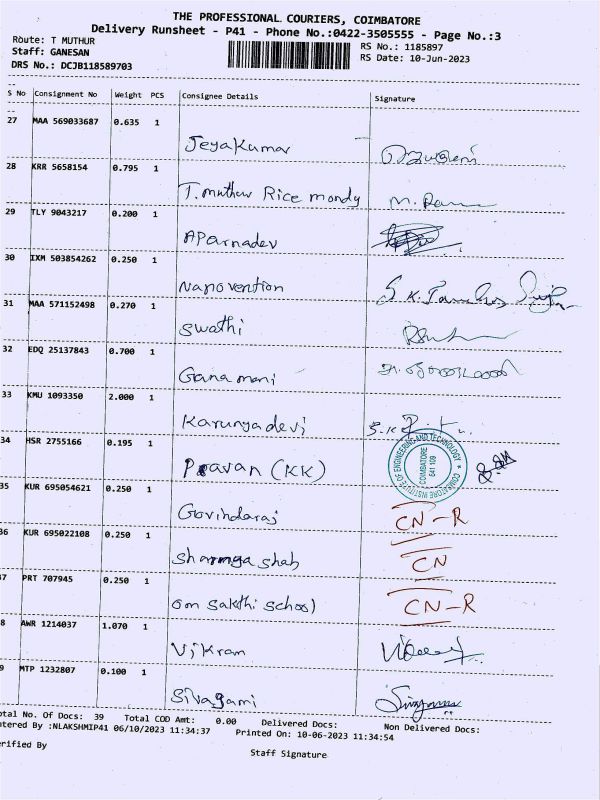 THE PROFESSIONAL COURIERS, COIMBATORE
Delivery Runsheet - P41 - Phone No.:0422-3505555 - Page No.:3
Route: T MUTHUR
RS No.: 1185897
Staff: GANESAN
RS Date: 10-Jun-2023
DRS No.: DCJB118589703
S No Consignment No Weight PCS Consignee Details Signature
27 MAA 569033687 0.635 1
Jeyakumar
28 KRR 5658154 0.795 1
T.muthur Rice mondy
29 TLY 9043217 0.200 1
AParnadev
30 IXM 503854262 0.250 1
Nanovention
31 MAA 571152498 0.270 1
Swathi
32 EDQ 25137843 0.700 1
Ganamani
33 KMU 1093350 2.000 1
Karunyadevi
34 HSR 2755166 0.195 1
Pravan (KK)
COIMBATORE INSTITUTE OF ENGINEERING AND TECHNOLOGY
COIMBATORE
641 109
35 KUR 695054621 0.250 1
Govindaraj CN-R
36 KUR 695022108 0.250 1
CN
7 PRT 707945 0.250 1
om sakthi school CN-R
8 AWR 1214037 1.070 1
Vikram
9 MTP 1232807 0.100 1
Sivagami
otal No. Of Docs: 39 Total COD Amt: 0.00 Delivered Docs: Non Delivered Docs:
ntered By :NLAKSHMIP41 06/10/2023 11:34:37 Printed On: 10-06-2023 11:34:54
erified By
Staff Signature